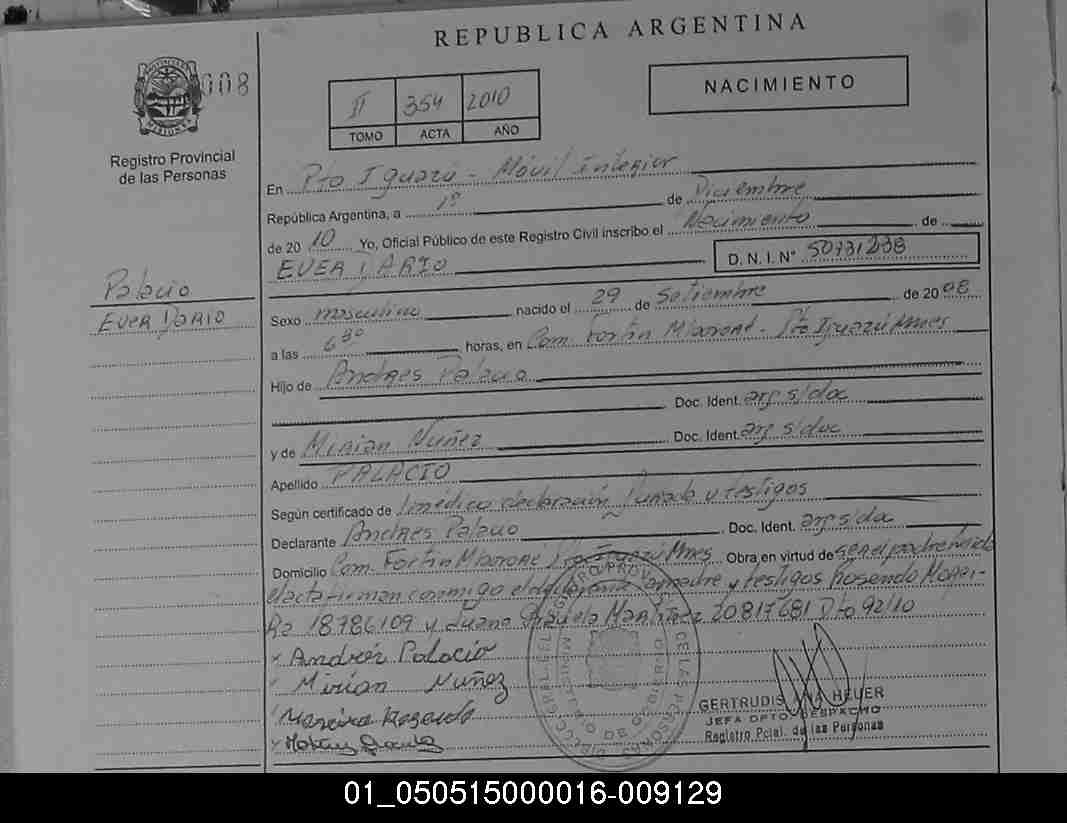 REPUBLICA ARGENTINA
008
II 354 2010
TOMO ACTA AÑO
NACIMIENTO
Registro Provincial
de las Personas
En Pto Iguazú - Móvil interior
República Argentina, a 1º de Diciembre
de 2010 Yo, Oficial Público de este Registro Civil inscribo el Nacimiento de
EVER DARIO D. N. I. Nº 50731238
Palacio
EVER DARIO
Sexo masculino nacido el 29 de Setiembre de 2008
a las 6 30 horas, en Com. Fortin Mbororé - Pto Iguazú Mnes
Hijo de Andres Palacio
Doc. Ident. arg s/doc
y de Mirian Nuñez Doc. Ident. arg s/doc
Apellido PALACIO
Según certificado de 1 médico declaración Jurada y testigos
Declarante Andres Palacio Doc. Ident. arg s/doc
Domicilio Com Fortin Mbororé Pto Iguazú Mnes Obra en virtud de ser el padre
el acta firman conmigo el declarante madre y testigos Rosendo
18786109 y Martinez 20817681 Dto 92/10
x Andrés Palacio
Mirian Nuñez
Rosendo
GERTRUDIS ANA HEUER
JEFA DPTO. DESPACHO
Registro Pcial. de las Personas
01_050515000016-009129